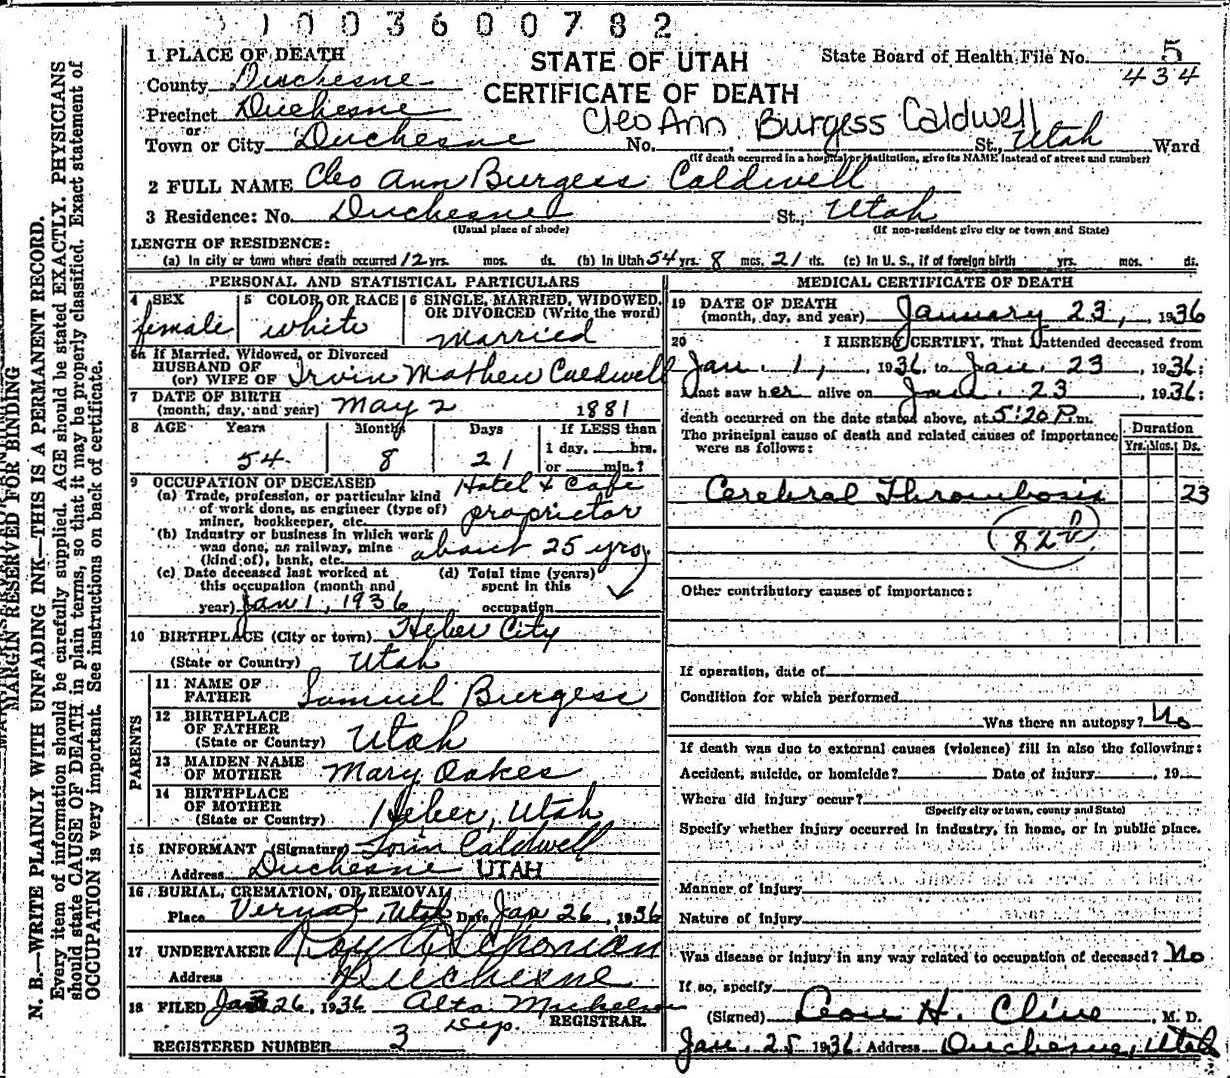 1003600782
STATE OF UTAH
CERTIFICATE OF DEATH
State Board of Health File No. 5
434
Cleo Ann Burgess Caldwell
1 PLACE OF DEATH
County Duchesne
Precinct Duchesne
or
Town or City Duchesne No. , St., Utah Ward
(If death occurred in a hospital or institution, give its NAME instead of street and number)
2 FULL NAME Cleo Ann Burgess Caldwell
3 Residence: No. Duchesne St., Utah
(Usual place of abode) (If non-resident give city or town and State)
LENGTH OF RESIDENCE:
(a) In city or town where death occurred 12 yrs. mos. ds. (b) In Utah 54 yrs. 8 mos. 21 ds. (c) In U. S., if of foreign birth yrs. mos. ds.
PERSONAL AND STATISTICAL PARTICULARS
4 SEX female
5 COLOR OR RACE white
6 SINGLE, MARRIED, WIDOWED, OR DIVORCED (Write the word) married
6a If Married, Widowed, or Divorced
HUSBAND OF
(or) WIFE OF Irvin Mathew Caldwell
7 DATE OF BIRTH
(month, day, and year) May 2 1881
8 AGE Years Months Days If LESS than
54 8 21 1 day, hrs.
or min.?
9 OCCUPATION OF DECEASED Hotel & Cafe
(a) Trade, profession, or particular kind
of work done, as engineer (type of) proprietor
miner, bookkeeper, etc.
(b) Industry or business in which work
was done, as railway, mine about 25 yrs
(kind of), bank, etc.
(c) Date deceased last worked at (d) Total time (years)
this occupation (month and spent in this
year) Jan 1, 1936 occupation
10 BIRTHPLACE (City or town) Heber City
(State or Country) Utah
PARENTS
11 NAME OF FATHER Samuel Burgess
12 BIRTHPLACE OF FATHER
(State or Country) Utah
13 MAIDEN NAME OF MOTHER Mary Oakes
14 BIRTHPLACE OF MOTHER
(State or Country) Heber, Utah
15 INFORMANT (Signature) Caldwell
Address Duchesne UTAH
16 BURIAL, CREMATION, OR REMOVAL
Place Vernal, Utah Date Jan 26, 1936
17 UNDERTAKER Roy
Address Duchesne
18 FILED Jan 26, 1936 Alta
Dep. REGISTRAR.
REGISTERED NUMBER 3
MEDICAL CERTIFICATE OF DEATH
19 DATE OF DEATH
(month, day, and year) January 23, 1936
20 I HEREBY CERTIFY, That I attended deceased from
Jan. 1, 1936 to Jan. 23, 1936;
I last saw her alive on Jan. 23, 1936;
death occurred on the date stated above, at 5:20 P.m.
The principal cause of death and related causes of importance
were as follows:
Duration
Yrs. Mos. Ds.
Cerebral Thrombosis 23
82b
Other contributory causes of importance:
If operation, date of
Condition for which performed
Was there an autopsy? No
If death was due to external causes (violence) fill in also the following:
Accident, suicide, or homicide? Date of injury , 19
Where did injury occur?
(Specify city or town, county and State)
Specify whether injury occurred in industry, in home, or in public place.
Manner of injury
Nature of injury
Was disease or injury in any way related to occupation of deceased? No
If so, specify
(Signed) Leon H. Cline, M. D.
Jan. 25 1936 Address Duchesne, Utah
MARGIN RESERVED FOR BINDING
N. B.—WRITE PLAINLY WITH UNFADING INK—THIS IS A PERMANENT RECORD.
Every item of information should be carefully supplied. AGE should be stated EXACTLY. PHYSICIANS
should state CAUSE OF DEATH in plain terms, so that it may be properly classified. Exact statement of
OCCUPATION is very important. See instructions on back of certificate.